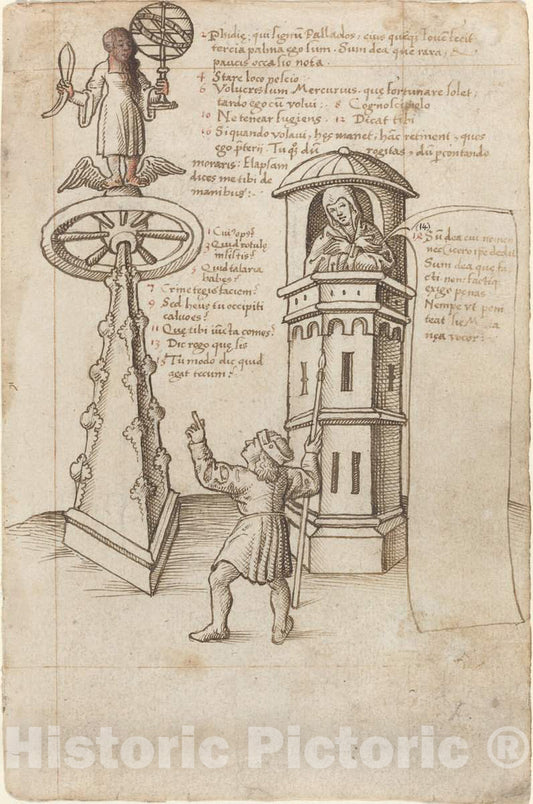 2 Phidię : qui signū Pallados, eius quęq; Iouē fecit
tercia palma ego sum . Sum dea quę rara,
paucis occasio nota .
4 Stare loco nescio .
6 Volucres sum Mercurius . quę fortunare solet,
tardo ego cū volui . 8 Cognosci nolo
10 Ne tenear fugiens . 12 Dicat tibi
16 Si quando volaui, hęc manet, hāc retinent, quos
ego pterij Tu q; dū rogitas, dū pcontando
moraris : Elapsam
dices me tibi de
manibus :
1 Cui opus?
3 Quid rotulę
insistis?
5 Quid talaria
habes?
7 Crine tegis faciem?
9 Sed heus tu occipiti
caluo es?
11 Quę tibi iūcta comes?
13 Dic rogo quę sis
15 Tu modo dic quid
agat tecum?
(14)
Sū dea cui nomen
nec Cicero ipe dedit
Sum dea quę fa
cti non factiq;
exigo penas
Nempe vt peni
teat sic Metа
nęa vocor :
Historic Pictoric ®